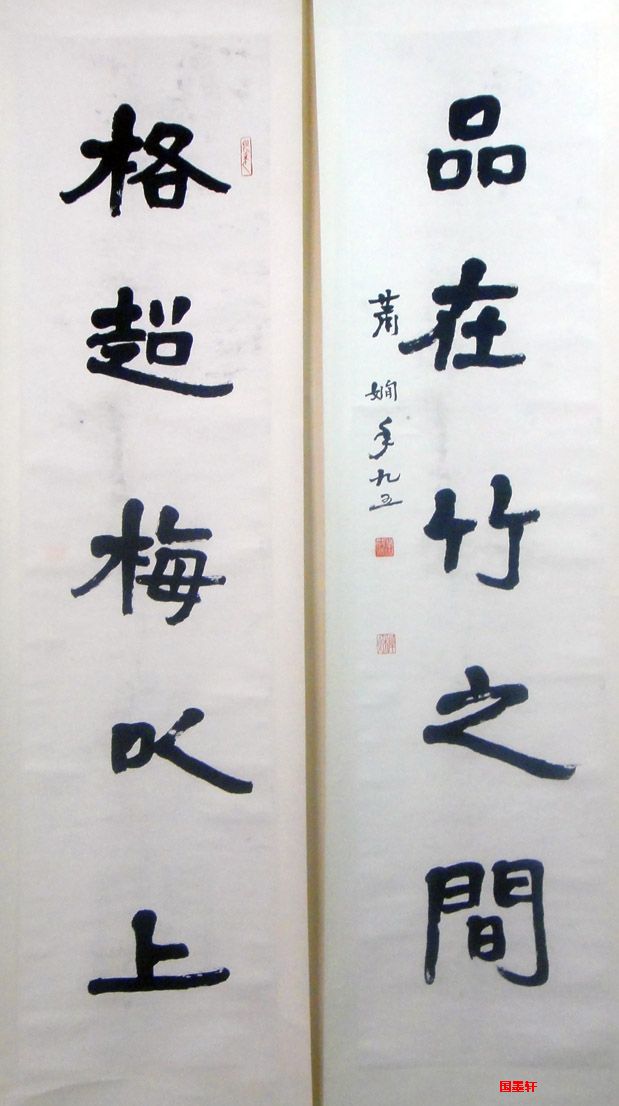 格超梅以上
品在竹之間
蕭嫻年九五
国墨轩